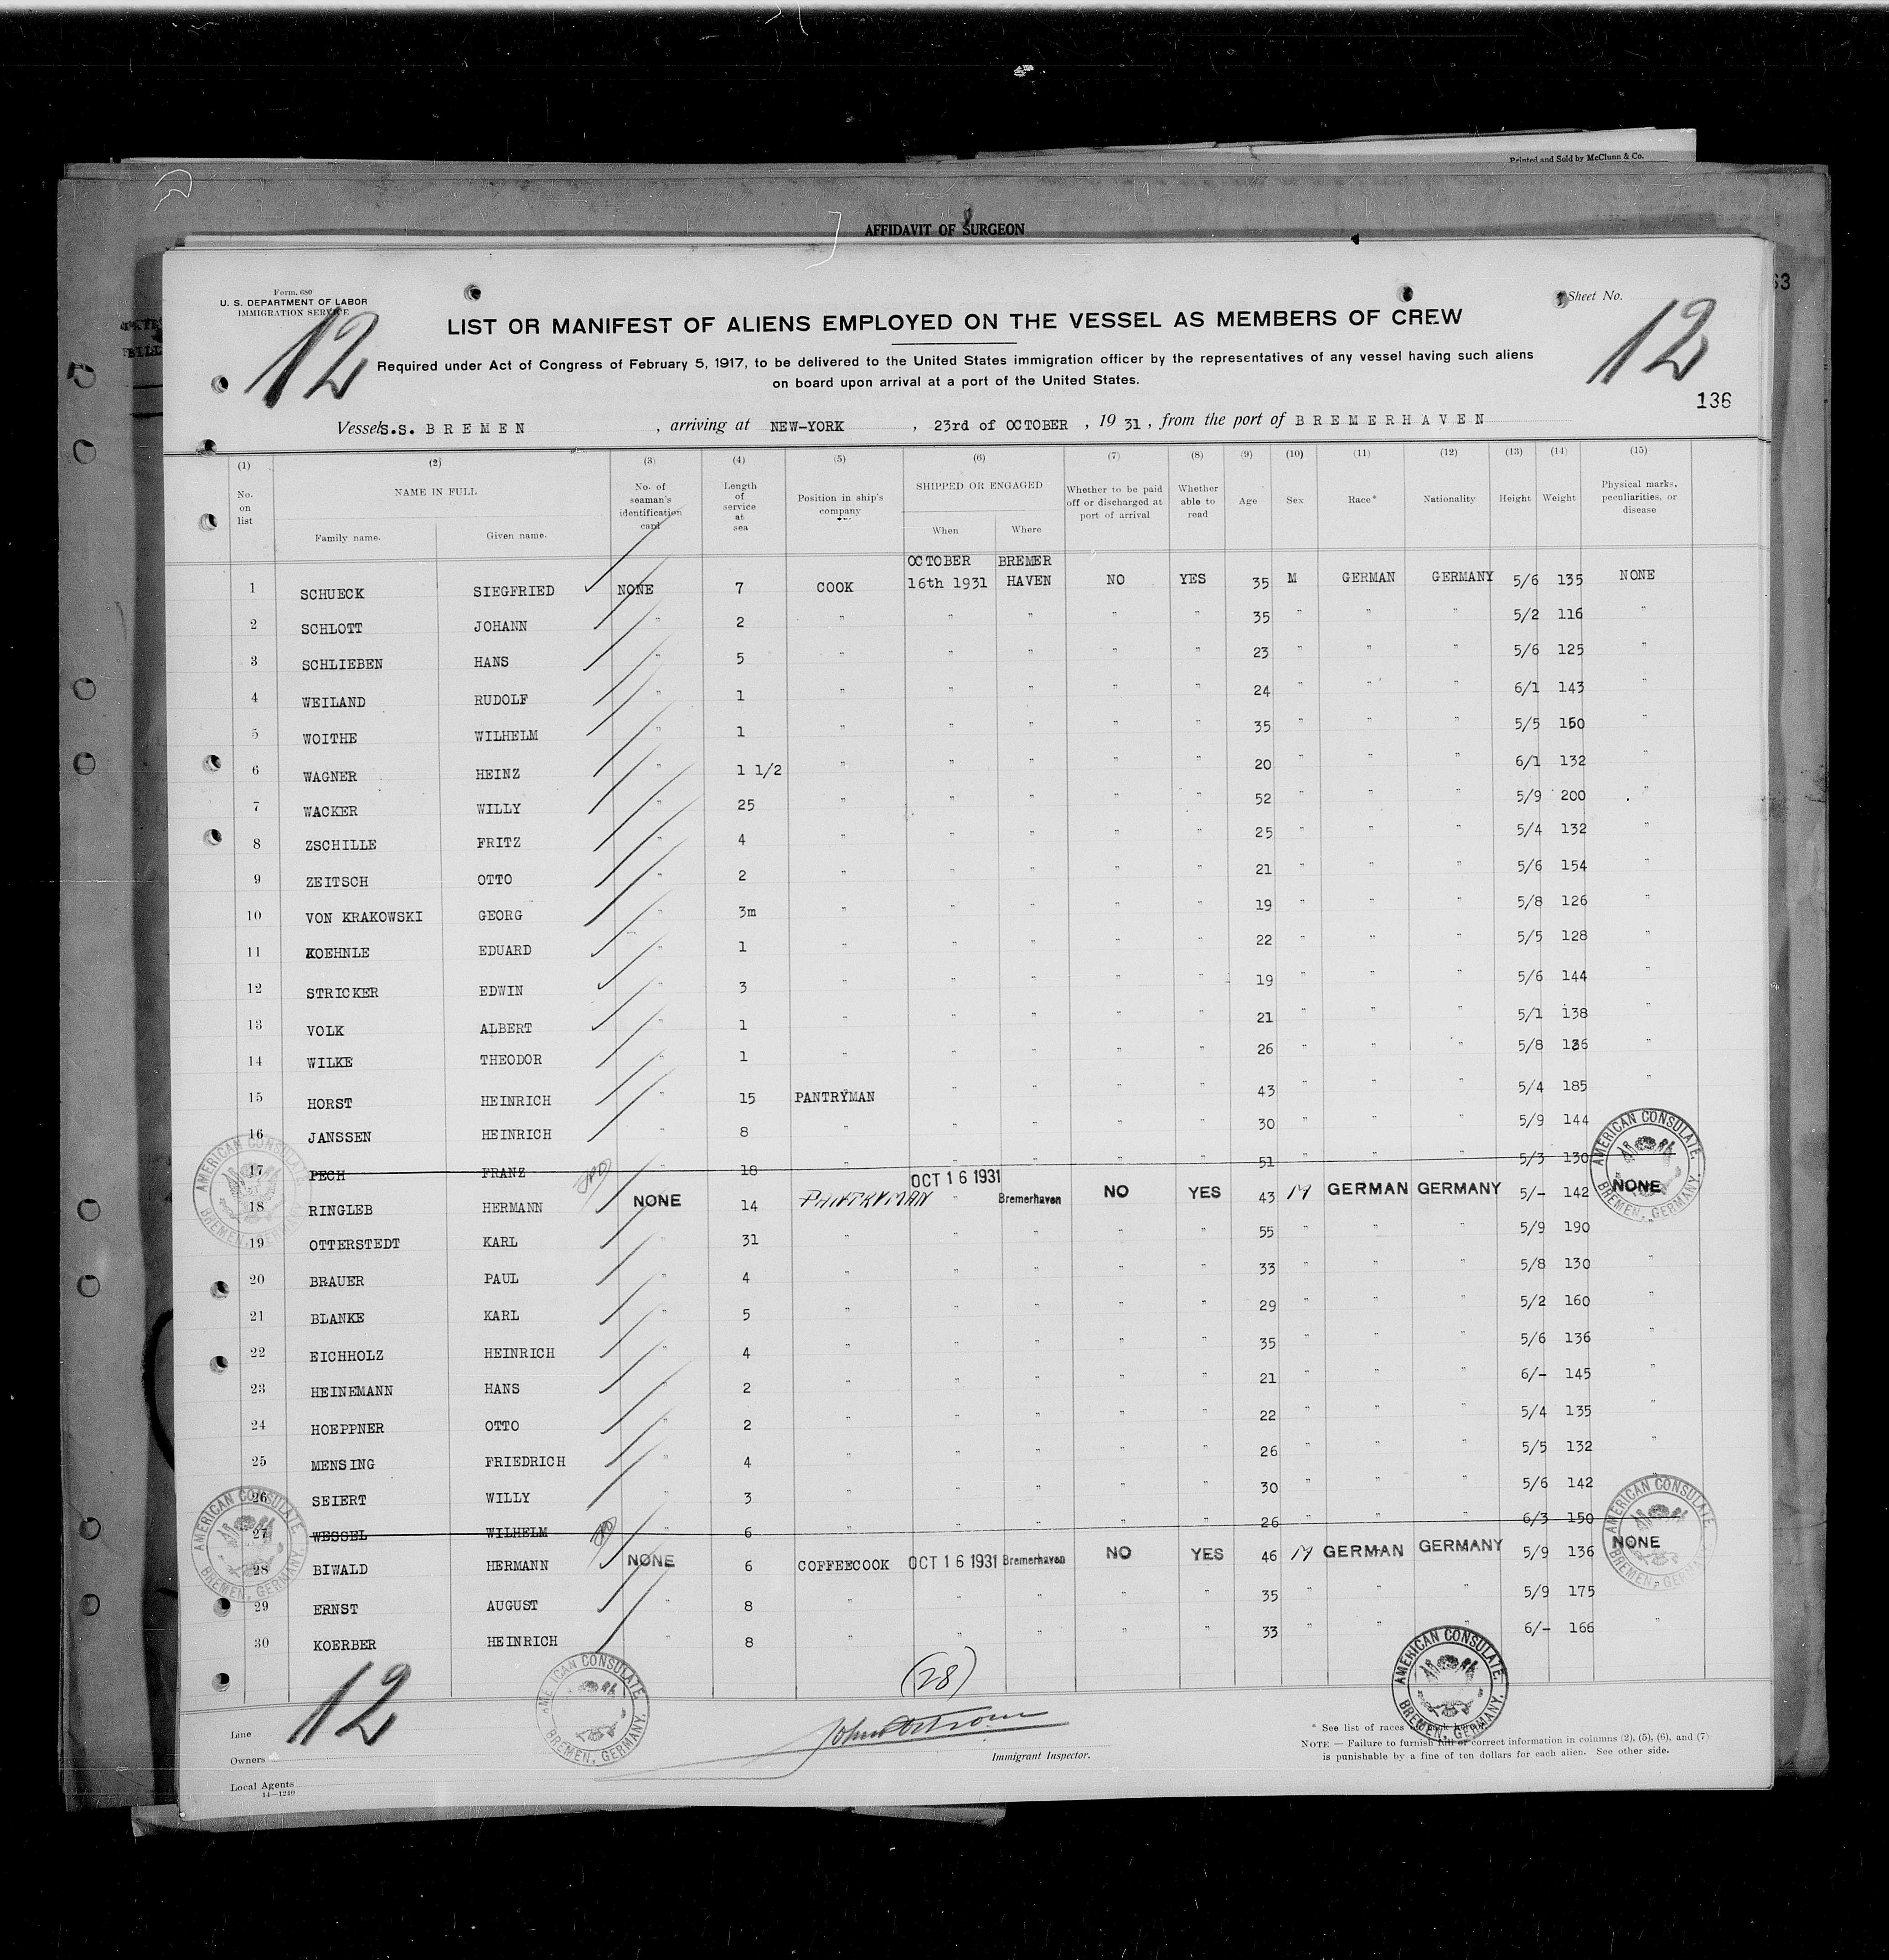 Printed and Sold by McClunn & Co.
AFFIDAVIT OF SURGEON
63
Form 680
U. S. DEPARTMENT OF LABOR
IMMIGRATION SERVICE
Sheet No.
12
12
LIST OR MANIFEST OF ALIENS EMPLOYED ON THE VESSEL AS MEMBERS OF CREW
Required under Act of Congress of February 5, 1917, to be delivered to the United States immigration officer by the representatives of any vessel having such aliens
on board upon arrival at a port of the United States.
136
Vessel S.S. BREMEN, arriving at NEW-YORK, 23rd of OCTOBER, 1931, from the port of BREMERHAVEN
(1) (2) (3) (4) (5) (6) (7) (8) (9) (10) (11) (12) (13) (14) (15)
No. on list NAME IN FULL Family name. Given name. No. of seaman's identification card Length of service at sea Position in ship's company SHIPPED OR ENGAGED When Where Whether to be paid off or discharged at port of arrival Whether able to read Age Sex Race* Nationality Height Weight Physical marks, peculiarities, or disease
OCTOBER BREMER
1 SCHUECK SIEGFRIED NONE 7 COOK 16th 1931 HAVEN NO YES 35 M GERMAN GERMANY 5/6 135 NONE
2 SCHLOTT JOHANN " 2 " " " " " 35 " " " 5/2 116 "
3 SCHLIEBEN HANS " 5 " " " " " 23 " " " 5/6 125 "
4 WEILAND RUDOLF " 1 " " " " " 24 " " " 6/1 143 "
5 WOITHE WILHELM " 1 " " " " " 35 " " " 5/5 150 "
6 WAGNER HEINZ " 1 1/2 " " " " " 20 " " " 6/1 132 "
7 WACKER WILLY " 25 " " " " " 52 " " " 5/9 200 "
8 ZSCHILLE FRITZ " 4 " " " " " 25 " " " 5/4 132 "
9 ZEITSCH OTTO " 2 " " " " " 21 " " " 5/6 154 "
10 VON KRAKOWSKI GEORG " 3m " " " " " 19 " " " 5/8 126 "
11 KOEHNLE EDUARD " 1 " " " " " 22 " " " 5/5 128 "
12 STRICKER EDWIN " 3 " " " " " 19 " " " 5/6 144 "
13 VOLK ALBERT " 1 " " " " " 21 " " " 5/1 138 "
14 WILKE THEODOR " 1 " " " " " 26 " " " 5/8 "
15 HORST HEINRICH " 15 PANTRYMAN " " " " 43 " " " 5/4 185 "
16 JANSSEN HEINRICH " 8 " " " " " 30 " " " 5/9 144
17 PECH FRANZ " 18 " " " " " 51 " " " 5/3 130
18 RINGLEB HERMANN NONE 14 PANTRYMAN OCT 16 1931 Bremerhaven NO YES 43 M GERMAN GERMANY 5/- 142 NONE
19 OTTERSTEDT KARL " 31 " " " " " 55 " " " 5/9 190 "
20 BRAUER PAUL " 4 " " " " " 33 " " " 5/8 130 "
21 BLANKE KARL " 5 " " " " " 29 " " " 5/2 160 "
22 EICHHOLZ HEINRICH " 4 " " " " " 35 " " " 5/6 136 "
23 HEINEMANN HANS " 2 " " " " " 21 " " " 6/- 145 "
24 HOEPPNER OTTO " 2 " " " " " 22 " " " 5/4 135 "
25 MENSING FRIEDRICH " 4 " " " " " 26 " " " 5/5 132 "
26 SEIERT WILLY " 3 " " " " " 30 " " " 5/6 142 "
27 WESSEL WILHELM " 6 " " " " " 26 " " " 6/3 150
28 BIWALD HERMANN NONE 6 COFFEECOOK OCT 16 1931 Bremerhaven NO YES 46 M GERMAN GERMANY 5/9 136 NONE
29 ERNST AUGUST " 8 " " " " " 35 " " " 5/9 175 "
30 KOERBER HEINRICH " 8 " " " " " 33 " " " 6/- 166 "
AMERICAN CONSULATE. BREMEN, GERMANY.
AMERICAN CONSULATE. BREMEN, GERMANY.
AMERICAN CONSULATE. BREMEN, GERMANY.
AMERICAN CONSULATE. BREMEN, GERMANY.
AMERICAN CONSULATE. BREMEN, GERMANY.
AMERICAN CONSULATE. BREMEN, GERMANY.
12
(28)
Line
Owners
Local Agents
14—1240
Immigrant Inspector.
* See list of races
NOTE — Failure to furnish full or correct information in columns (2), (5), (6), and (7)
is punishable by a fine of ten dollars for each alien. See other side.